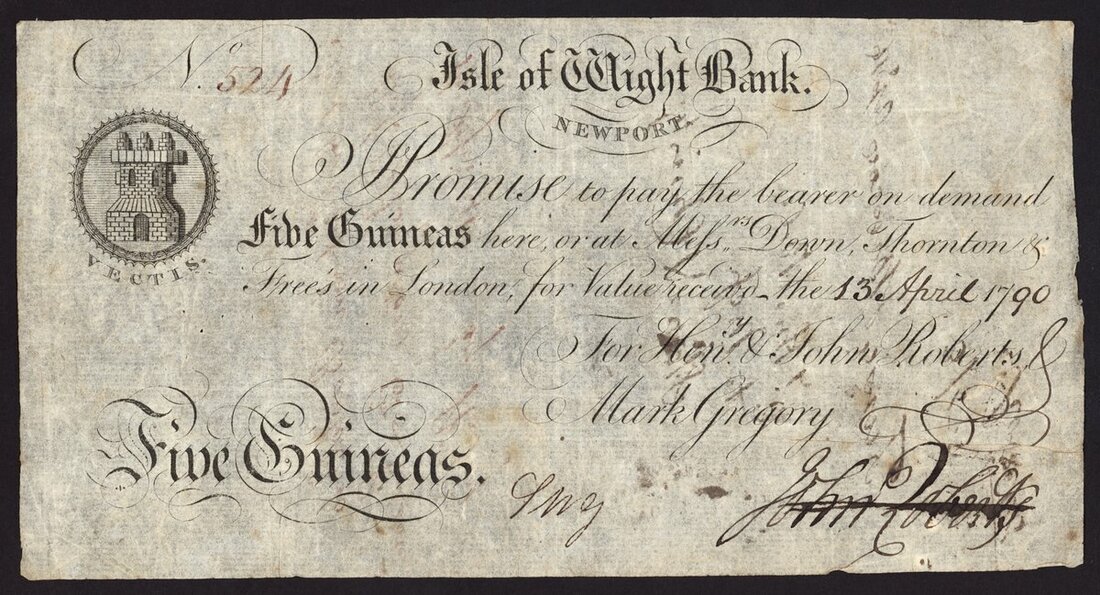 No. 524
Isle of Wight Bank.
NEWPORT.
VECTIS.
I Promise to pay the bearer on demand
Five Guineas here, or at Messrs. Down, Thornton &
Free's in London, for Value received the 13 April 1790
For Heny. & John Roberts &
Mark Gregory
Five Guineas.
John Roberts